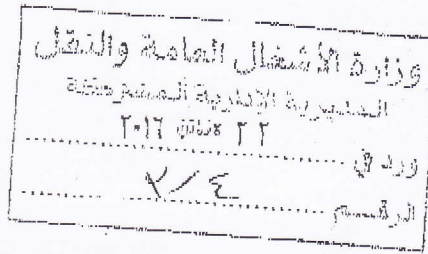 وزارة الأشغال العامة والنقل
المديرية الإدارية المشتركة
٢٢ ٢٠١٦
ورد في
الرقم ٢/٤